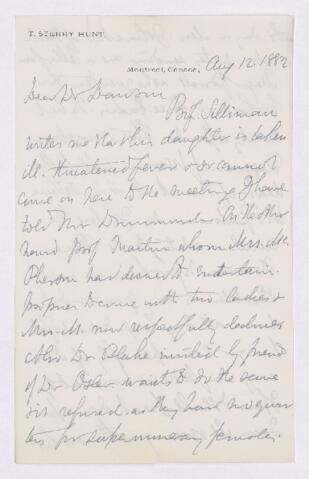 T. STERRY HUNT.
Montreal, Canada, Aug 12. 1882
Dear Dr Dawson
Prof. Silliman
writes me that his daughter is taken
ill. threatened fever & so cannot
come on here to the meeting. I have
told Mr Drummond. On the other
hand Prof. Martin whom Mrs. Mc
Pherson has desired to entertain
proposes to come with two ladies &
Mrs. M. now respectfully declines
also Dr Blake invited by friend
of Dr Osler wants to do the same
& is refused. as they have no quar
ters for supernumerary females.